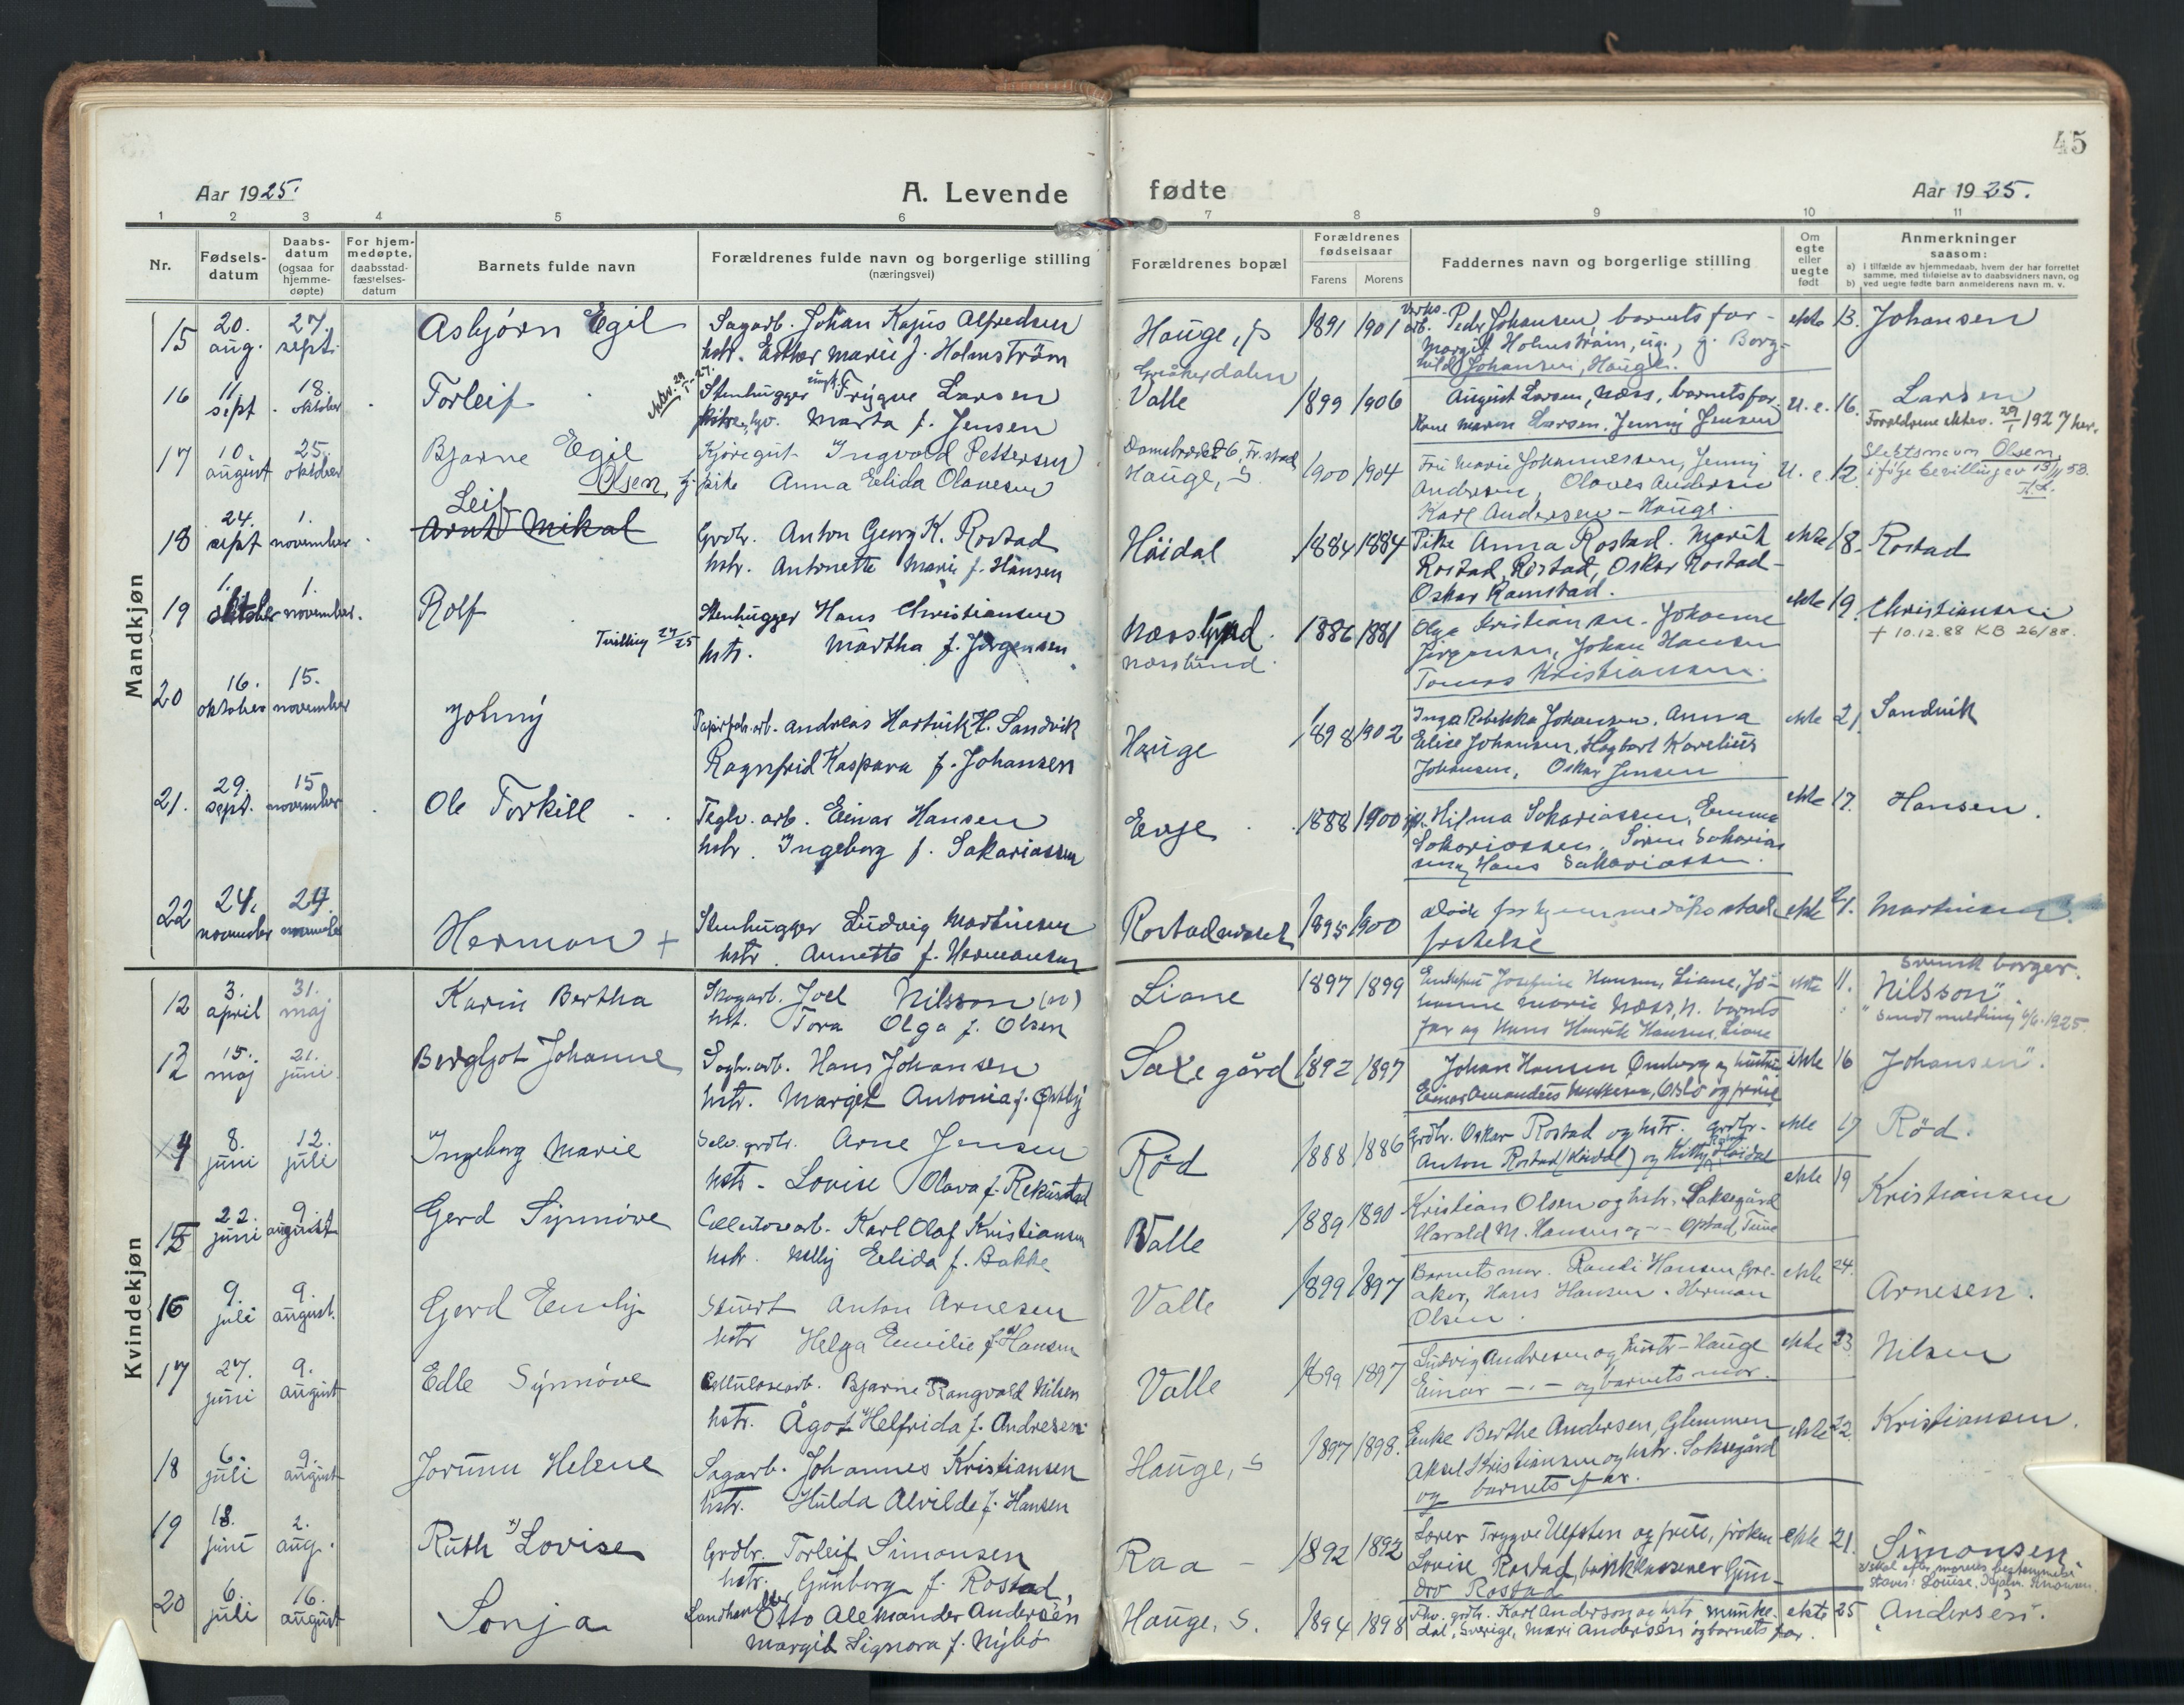 45
Aar 1925.
A. Levende fødte
Aar 1925.
1 2 3 4 5 6 7 8 9 10 11
Nr.
Fødsels-
datum
Daabs-
datum
(ogsaa for
hjemme-
døpte)
For hjem-
medøpte,
daabsstad-
fæstelses-
datum
Barnets fulde navn
Forældrenes fulde navn og borgerlige stilling
(næringsvei)
Forældrenes bopæl
Forældrenes
fødselsaar
Farens Morens
Faddernes navn og borgerlige stilling
Om
egte
eller
uegte
født
Anmerkninger
saasom:
a) i tilfælde av hjemmedaab, hvem der har forrettet
samme, med tilføielse av to daabsvidners navn, og
b) ved uegte fødte barn anmelderens navn m. v.
Mandkjøn
15 20. aug. 27. sept. Asbjørn Egil
Sagarb. Johan Kajus Alfredsen
hstr. Esther Marie f. Holmström
Hauge, 1891 1901
arb. Peder Johansen, barnets far -
Margit Holmström, ug., g. Borg-
hild Johansen, Hauge.
ekte 13. Johansen
16 11. sept. 18. oktober Torleif
Stenhugger ungk. Trygve Larsen
Marta f. Jensen
Greåkerdalen
Valle 1899 1906
August Larsen, Næss, barnets far.
Kone Maren Larsen. Jenny Jensen
U. e. 16. Larsen
Forældrene ektev. 29/1 1927 her.
17 10. august 25. oktober Bjarne Egil
Olsen
Kjøregut Ingvald Pettersen
g. pike Anna Elida Olavesen
Hauge, S. 1900 1904
Fru Marie Johannessen, Jenny
Andresen, Olaves Andersen
Karl Andersen - Hauge.
U. e. 12.
Slektsnavn Olsen
ifølge bevilling av 13/4 53.
18 24. sept 1. november Leif
Arnt Mikal
Grdbr. Anton Georg K. Rostad
hstr. Antonette Marie f. Hansen
Höidal 1884 1884
Pike Anna Rostad. Marit
Rostad, Rostad, Oskar Rostad -
Oskar Ramstad.
ekte 18. Rostad
19 1. oktober 1. november. Rolf
Tvilling 24/25
Stenhugger Hans Christiansen
hstr. Martha f. Jörgensen
Næsslund 1886 1881
Olga Kristiansen. Johanne
Jörgensen, Johan Hansen
Tomas Kristiansen.
ekte 19. Christiansen
+ 10.12.88 KB 26/88.
20 16. oktober 15. november Johny
Papirfab. arb. Andreas Hartvik H. Sandvik
Ragnfrid Kaspara f. Johansen
Hauge 1898 1902
Inga Rebekka Johansen, Anna
Elise Johansen, Hagbart Karelius
Johansen, Oskar Jensen
ekte 21 Sandvik
21. 29. sept. 15 november Ole Torkill
Teglv. arb. Einar Hansen
hstr. Ingeborg f. Sakariassen
Evje 1888 1900
Hilma Sakariassen, Emma
Sakariassen, Sören Sakarias
sen, Hans Sakariassen.
ekte 17. Hansen.
22 24. november 24. november Herman +
Stenhugger Ludvig Martinsen
hstr. Annette f. Hermansen
Rostad 1895 1900
döde för hjemmedåps stad-
festelse
ekte Martinsen.
Kvindekjøn
12 3. april 31. maj Karin Bertha
Skogarb. Joel Nilsson
hst. Tora Olga f. Olsen
Liane 1897 1899
Josefine Hansen, Liane, Jo-
hanne Marie Næss, N. barnets
far og Hans Henrik Hansen, Liane
ekte 11. Svensk borger.
Nilsson"
" Sendt melding 6/6. 1925.
13 15. maj 21. juni Bergljot Johanne
Sagbr. arb. Hans Johansen
hstr. Margit Antonia f. Östby
Saxegård 1892 1897
Johan Hansen Omberg og hustru
Einar Amandus
ekte 16 Johansen".
14 8. juni 12. juli Ingeborg Marie
Selv. grdbr. Arne Jensen
hstr. Lovise Olava f. Rekustad
Röd 1888 1886
Grdbr. Oskar Rostad og hstr. grdbr.
Anton Rostad (Höidal) og Kitty Höidal
ekte 17 Röd.
15 22. juni 9. august Gerd Synnöve
Cellulosearb. Karl Olaf Kristiansen
hstr. Nelly Elida f. Bakke
Valle 1889 1890
Kristian Olsen og hstr. Saksegård
Harald M. Hansen og - - Opstad, Tune
ekte 19 Kristiansen
16 9. juli 9. august. Gerd Emily
Stuert Anton Arnesen
hstr Helga Emilie f. Hansen
Valle 1899 1897
Barnets mor. Randi Hansen, Gre-
aker, Hans Hansen. Herman
Olsen.
ekte 24. Arnesen.
17 27. juni 9. august Edle Synnöve
Cellulosearb. Bjarne Rangvald Nilsen
hstr. Ågot Helfrida f. Andresen
Valle 1899 1897
Ludvig Andresen og hustr - Hauge
Einar - " - og barnets mor.
ekte 23. Nilsen
18 6. juli 9. august Jorunn Helene
Sagarb. Johannes Kristiansen
hstr. Hulda Alvilde f. Hansen
Hauge, S 1897 1898.
Enke Berthe Andersen, Glemmen
Aksel Kristiansen og hstr. Saksegård
og barnets far.
ekte 22. Kristiansen.
19 18. juni 2. aug. Ruth x) Lovise
Grdbr. Torleif Simonsen
hstr. Gunborg f. Rostad
Raa - 1892 1892
Lærer Trygve Ulfsten og frue, fröken
Lovise Rostad, bankkasserer Gun-
dro Rostad
ekte 21. Simonsen.
x) skal efter morens bestemmelse
staves: Louise.
20 6. juli 16. august Sonja
Landhandler Otto Aleksander Andersen
Margit Signora f. Nybö
Hauge, S. 1894 1898
Karl Anderson og hstr. Munke-
dal, Sverige, Mari Andersen og barnets far.
ekte 25 Andersen".